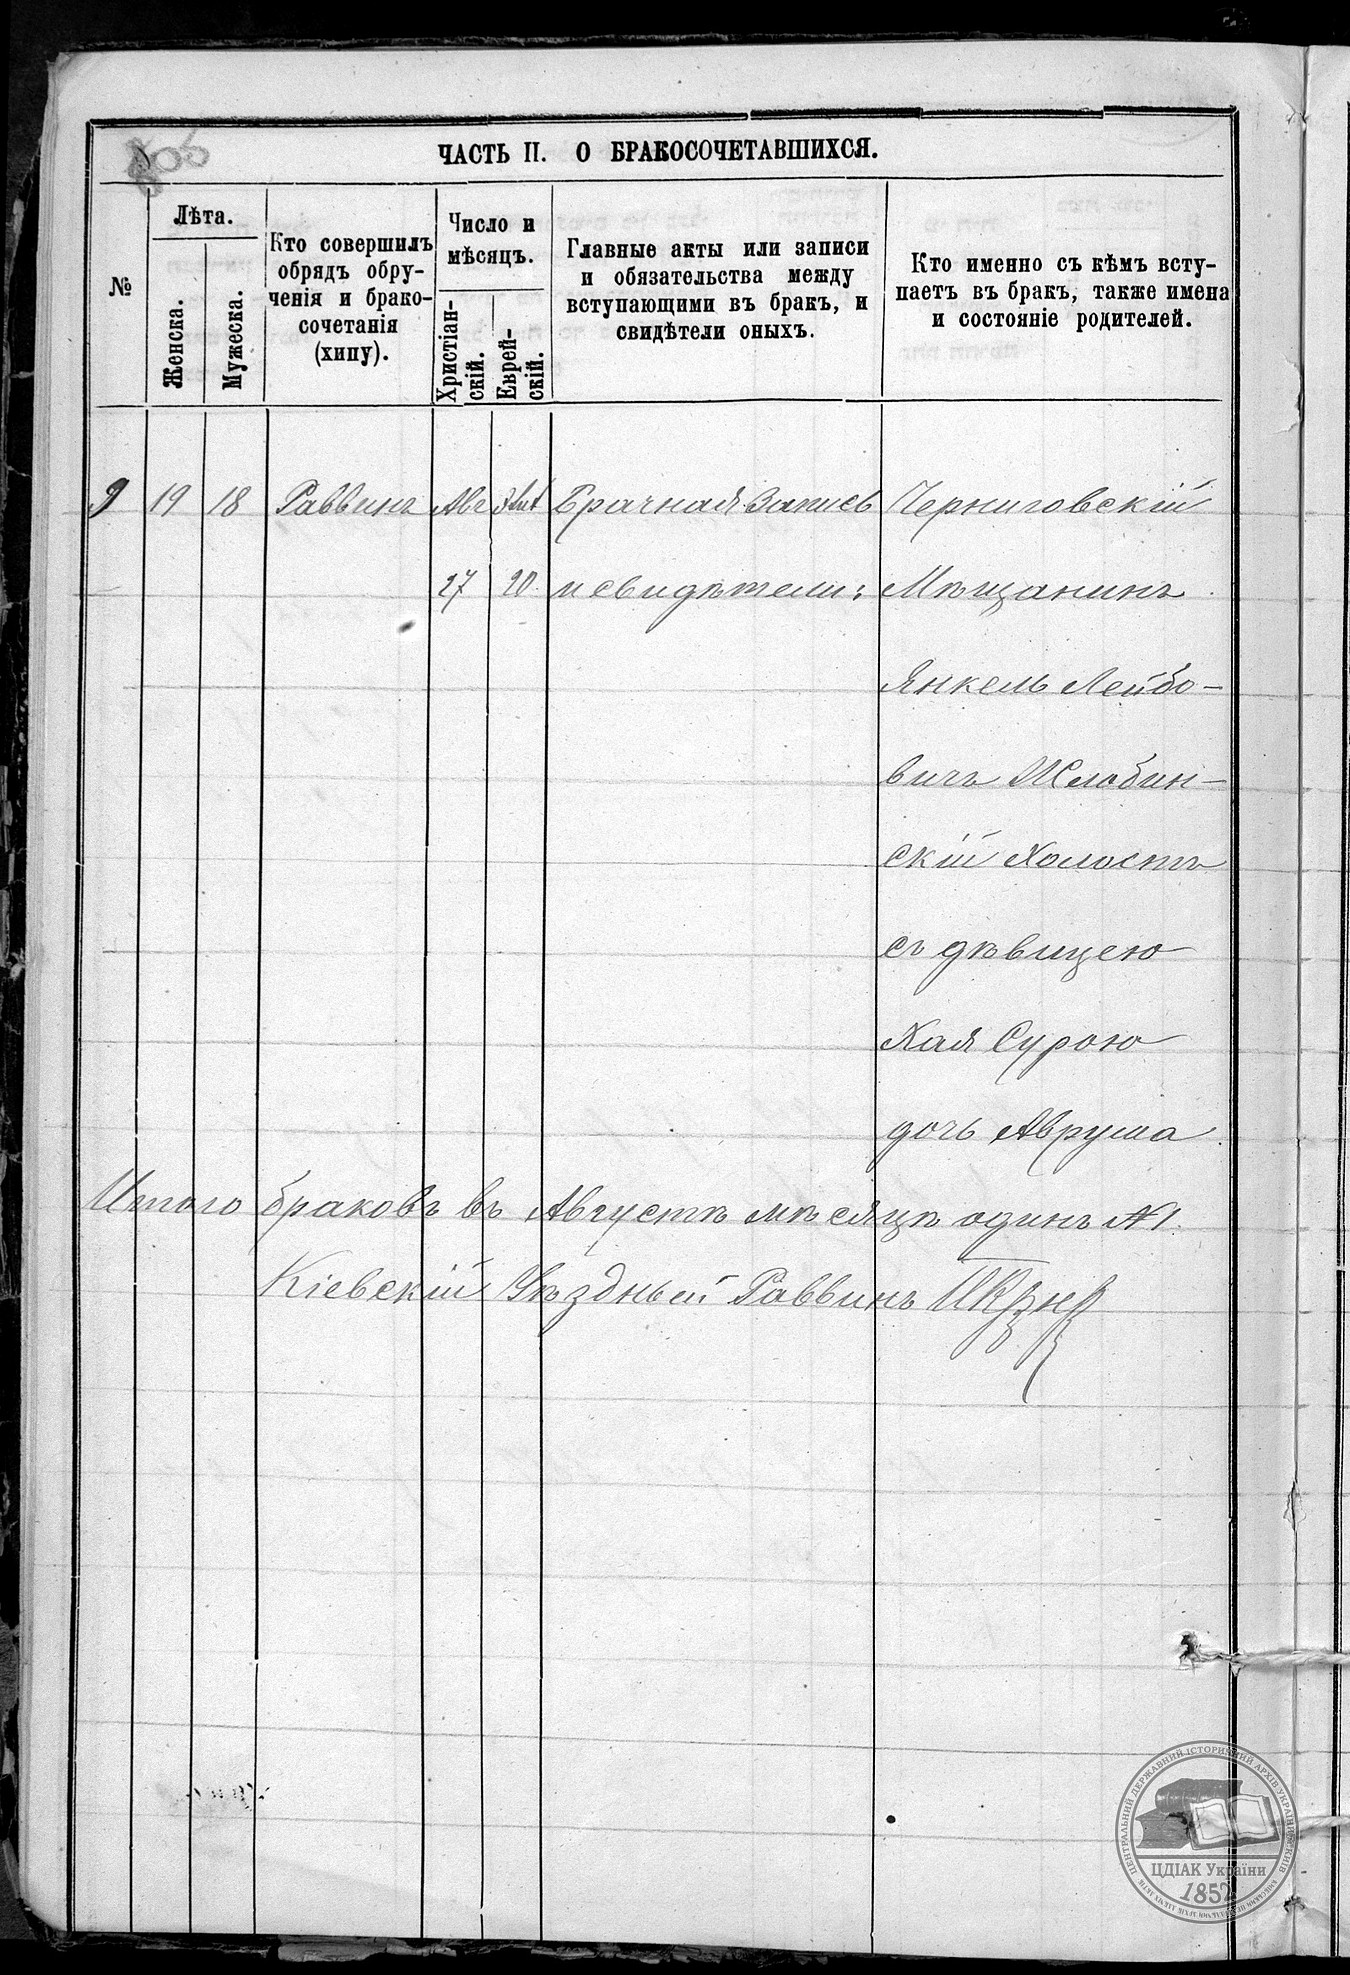 805
ЧАСТЬ II. О БРАКОСОЧЕТАВШИХСЯ.
№
Лѣта.
Женска.
Мужеска.
Кто совершилъ
обрядъ обру-
ченія и брако-
сочетанія
(хипу).
Число и
мѣсяцъ.
Христіан-
скій.
Еврей-
скій.
Главные акты или записи
и обязательства между
вступающими въ бракъ, и
свидѣтели оныхъ.
Кто именно съ кѣмъ всту-
паетъ въ бракъ, также имена
и состояніе родителей.
9 19 18 Раввинъ Авг Брачная Запись Черниговскій
27 20 и свидѣтели: Мѣщанинъ
Янкель Лейбо-
вичъ Жлобин-
скій Холостъ
съ дѣвицею
Хая Сурою
дочь Аврума
Итого браковъ въ Августѣ мѣсяцѣ одинъ №1.
Кіевскій Уѣздный Раввинъ
ЦЕНТРАЛЬНИЙ ДЕРЖАВНИЙ ІСТОРИЧНИЙ АРХІВ УКРАЇНИ, М. КИЇВ
ЦДІАК України
1852